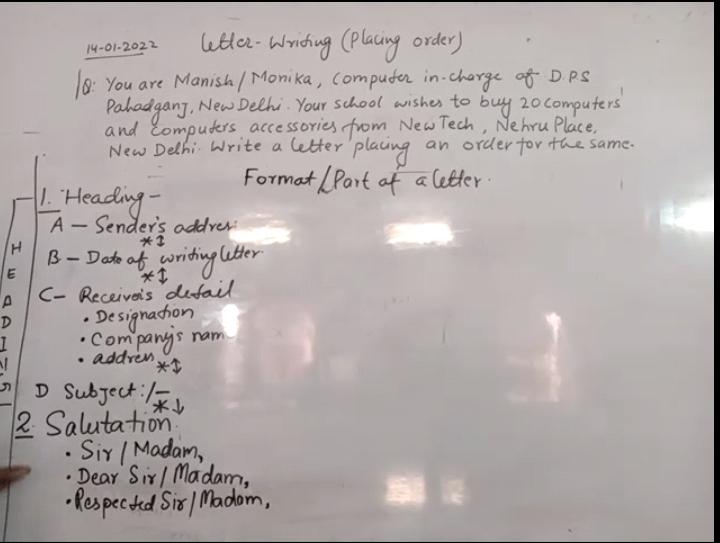 14-01-2022 Letter-Writing (Placing order)
Q: You are Manish/Monika, Computer in-charge of D.P.S
Pahadganj, New Delhi. Your school wishes to buy 20 Computers
and Computers accessories from New Tech, Nehru Place,
New Delhi. Write a letter placing an order for the same.
Format/Part of a letter.
1. Heading-
A - Sender's addres
*↕
B - Date of writing letter.
*↕
C- Receiver's detail
• Designation
• Company's nam
• address
*↕
D Subject:/-
*↓
2. Salutation
• Sir/Madam,
• Dear Sir/Madam,
• Respected Sir/Madam,
HEADING